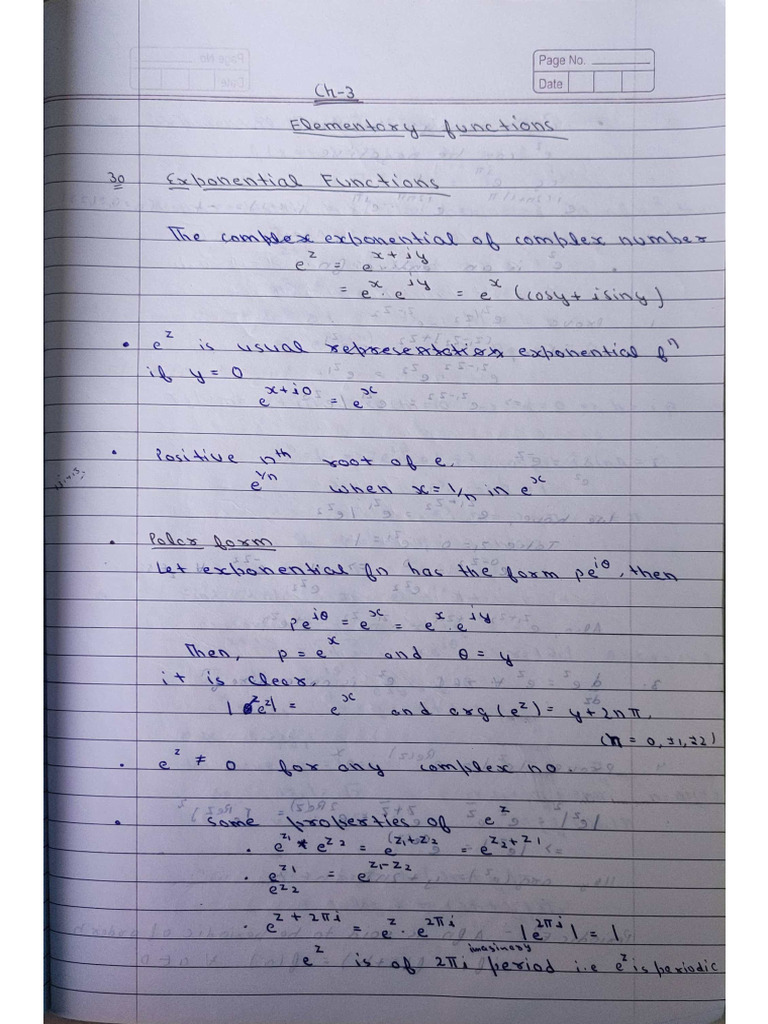 Page No.
Date
Ch-3
Elementary functions
30 Exponential Functions
The complex exponential of complex number
e^z = e^{x+iy}
= e^x . e^{iy} = e^x (cosy + isiny)
• e^z is usual representation exponential fⁿ
if y = 0
e^{x+i0} = e^x
• Positive nth root of e.
e^{1/n} when x = 1/n in e^x
• Polar form
Let exponential fn has the form ρe^{iθ}, then
ρe^{iθ} = e^x = e^x . e^{iy}
Then, ρ = e^x and θ = y
it is clear,
|e^z| = e^x and arg(e^z) = y + 2nπ.
(n = 0, ±1, ±2)
• e^z ≠ 0 for any complex no.
• Some properties of e^z
• e^{z1} * e^{z2} = e^{(z1+z2} = e^{z2+z1}
• e^{z1}/e^{z2} = e^{z1-z2}
• e^{z+2πi} = e^z . e^{2πi} |e^{2πi}| = 1
imaginary
e^z is of 2πi period i.e e^z is periodic